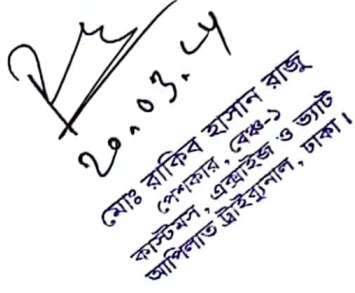 20.03.24
মোঃ রাকিব হাসান রাজু
পেশকার, বেঞ্চ-১
কাস্টমস, এক্সাইজ ও ভ্যাট
আপিলাত ট্রাইব্যুনাল, ঢাকা।